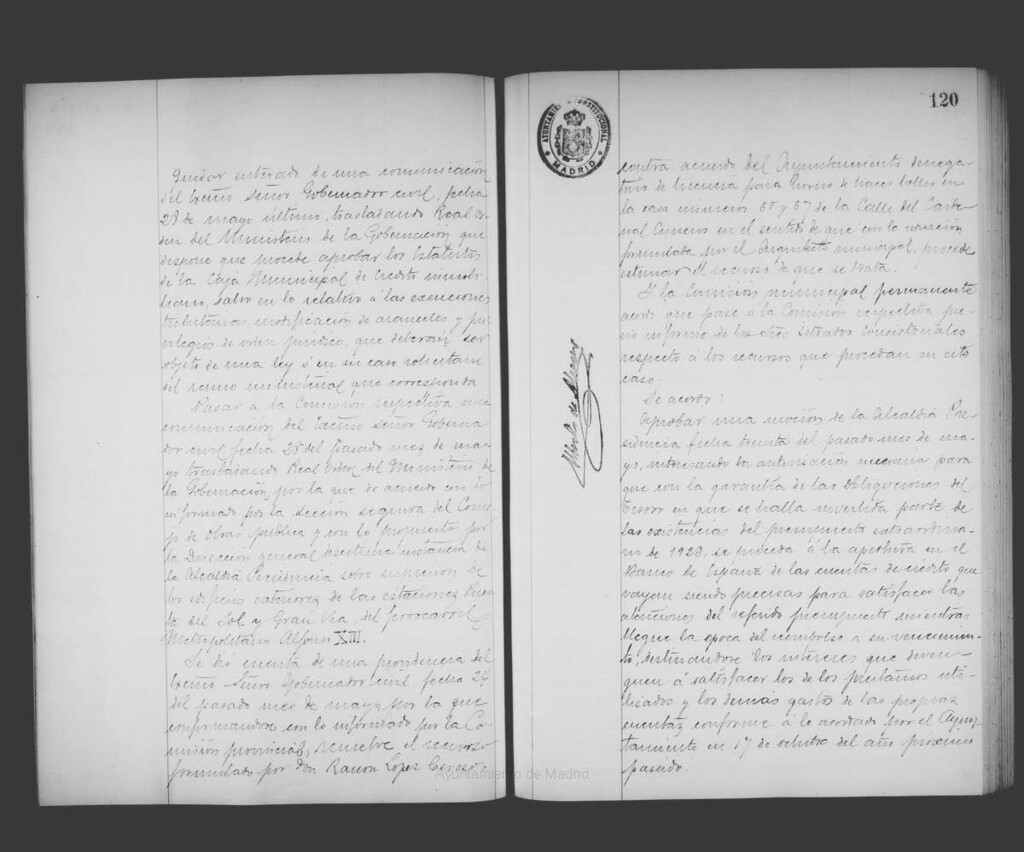 Quedar enterado de una comunicación
del Excmo Señor Gobernador civil, fecha
28 de mayo último, trasladando Real or-
den del Ministerio de la Gobernación que
dispone que procede aprobar los Estatutos
de la Caja Municipal de Crédito
salvo en lo relativo á las exenciones
tributarias, modificación de aranceles, y pri-
vilegios de orden jurídico, que deberán ser
objeto de una ley ó en su caso solicitarse
del ramo ministerial que corresponda
Pasar á la Comisión respectiva una
comunicación del Excmo Señor Goberna-
dor civil fecha 28 del pasado mes de ma-
yo trasladando Real Orden del Ministerio de
la Gobernación, por la que de acuerdo con lo
informado por la sección segunda del Conse-
jo de Obras públicas y con lo propuesto por
la Dirección general instancia de
la Alcaldía Presidencia sobre supresión de
los edificios exteriores de las estaciones Puer-
ta del Sol y Gran Vía, del ferrocarril
Metropolitano Alfonso XIII.
Se dió cuenta de una providencia del
Excmo Señor Gobernador civil, fecha 24
del pasado mes de mayo por la que
conformandose con lo informado por la Co-
misión provincial, resuelve el recurso
formulado por Don Ramon Lopez
120
AYUNTAMIENTO CONSTITUCIONAL
MADRID
contra acuerdo del Ayuntamiento denega-
torio de licencia para horno de hacer bollos en
la casa números 65 y 67 de la Calle del Carde-
nal Cisneros en el sentido de que con la
formulada por el Arquitecto municipal, procede
estimar el recurso de que se trata.
Y la Comisión municipal permanente
acordó que pase á la Comisión respectiva pre-
vio informe de los Sres Letrados Consistoriales
respecto á los recursos que procedan en este
caso.
Se acordó:
Aprobar una moción de la Alcaldía Pre-
sidencia fecha treinta del pasado mes de ma-
yo, interesando la autorización necesaria para
que con la garantía de las Obligaciones del
Tesoro en que se halla invertida parte de
las existencias del presupuesto extraordina-
rio de 1923, se proceda á la apertura en el
Banco de España de las cuentas de crédito que
vayan siendo precisas para satisfacer las
atenciones del referido presupuesto mientras
llegue la época del reembolso a su vencimien-
to, destinandose los intereses que deven-
guen á satisfacer los de los prestamos uti-
lizados y los demás gastos de las propias
cuentas conforme á lo acordado por el Ayun-
tamiento en 17 de octubre del año próximo
pasado.
Ayuntamiento de Madrid